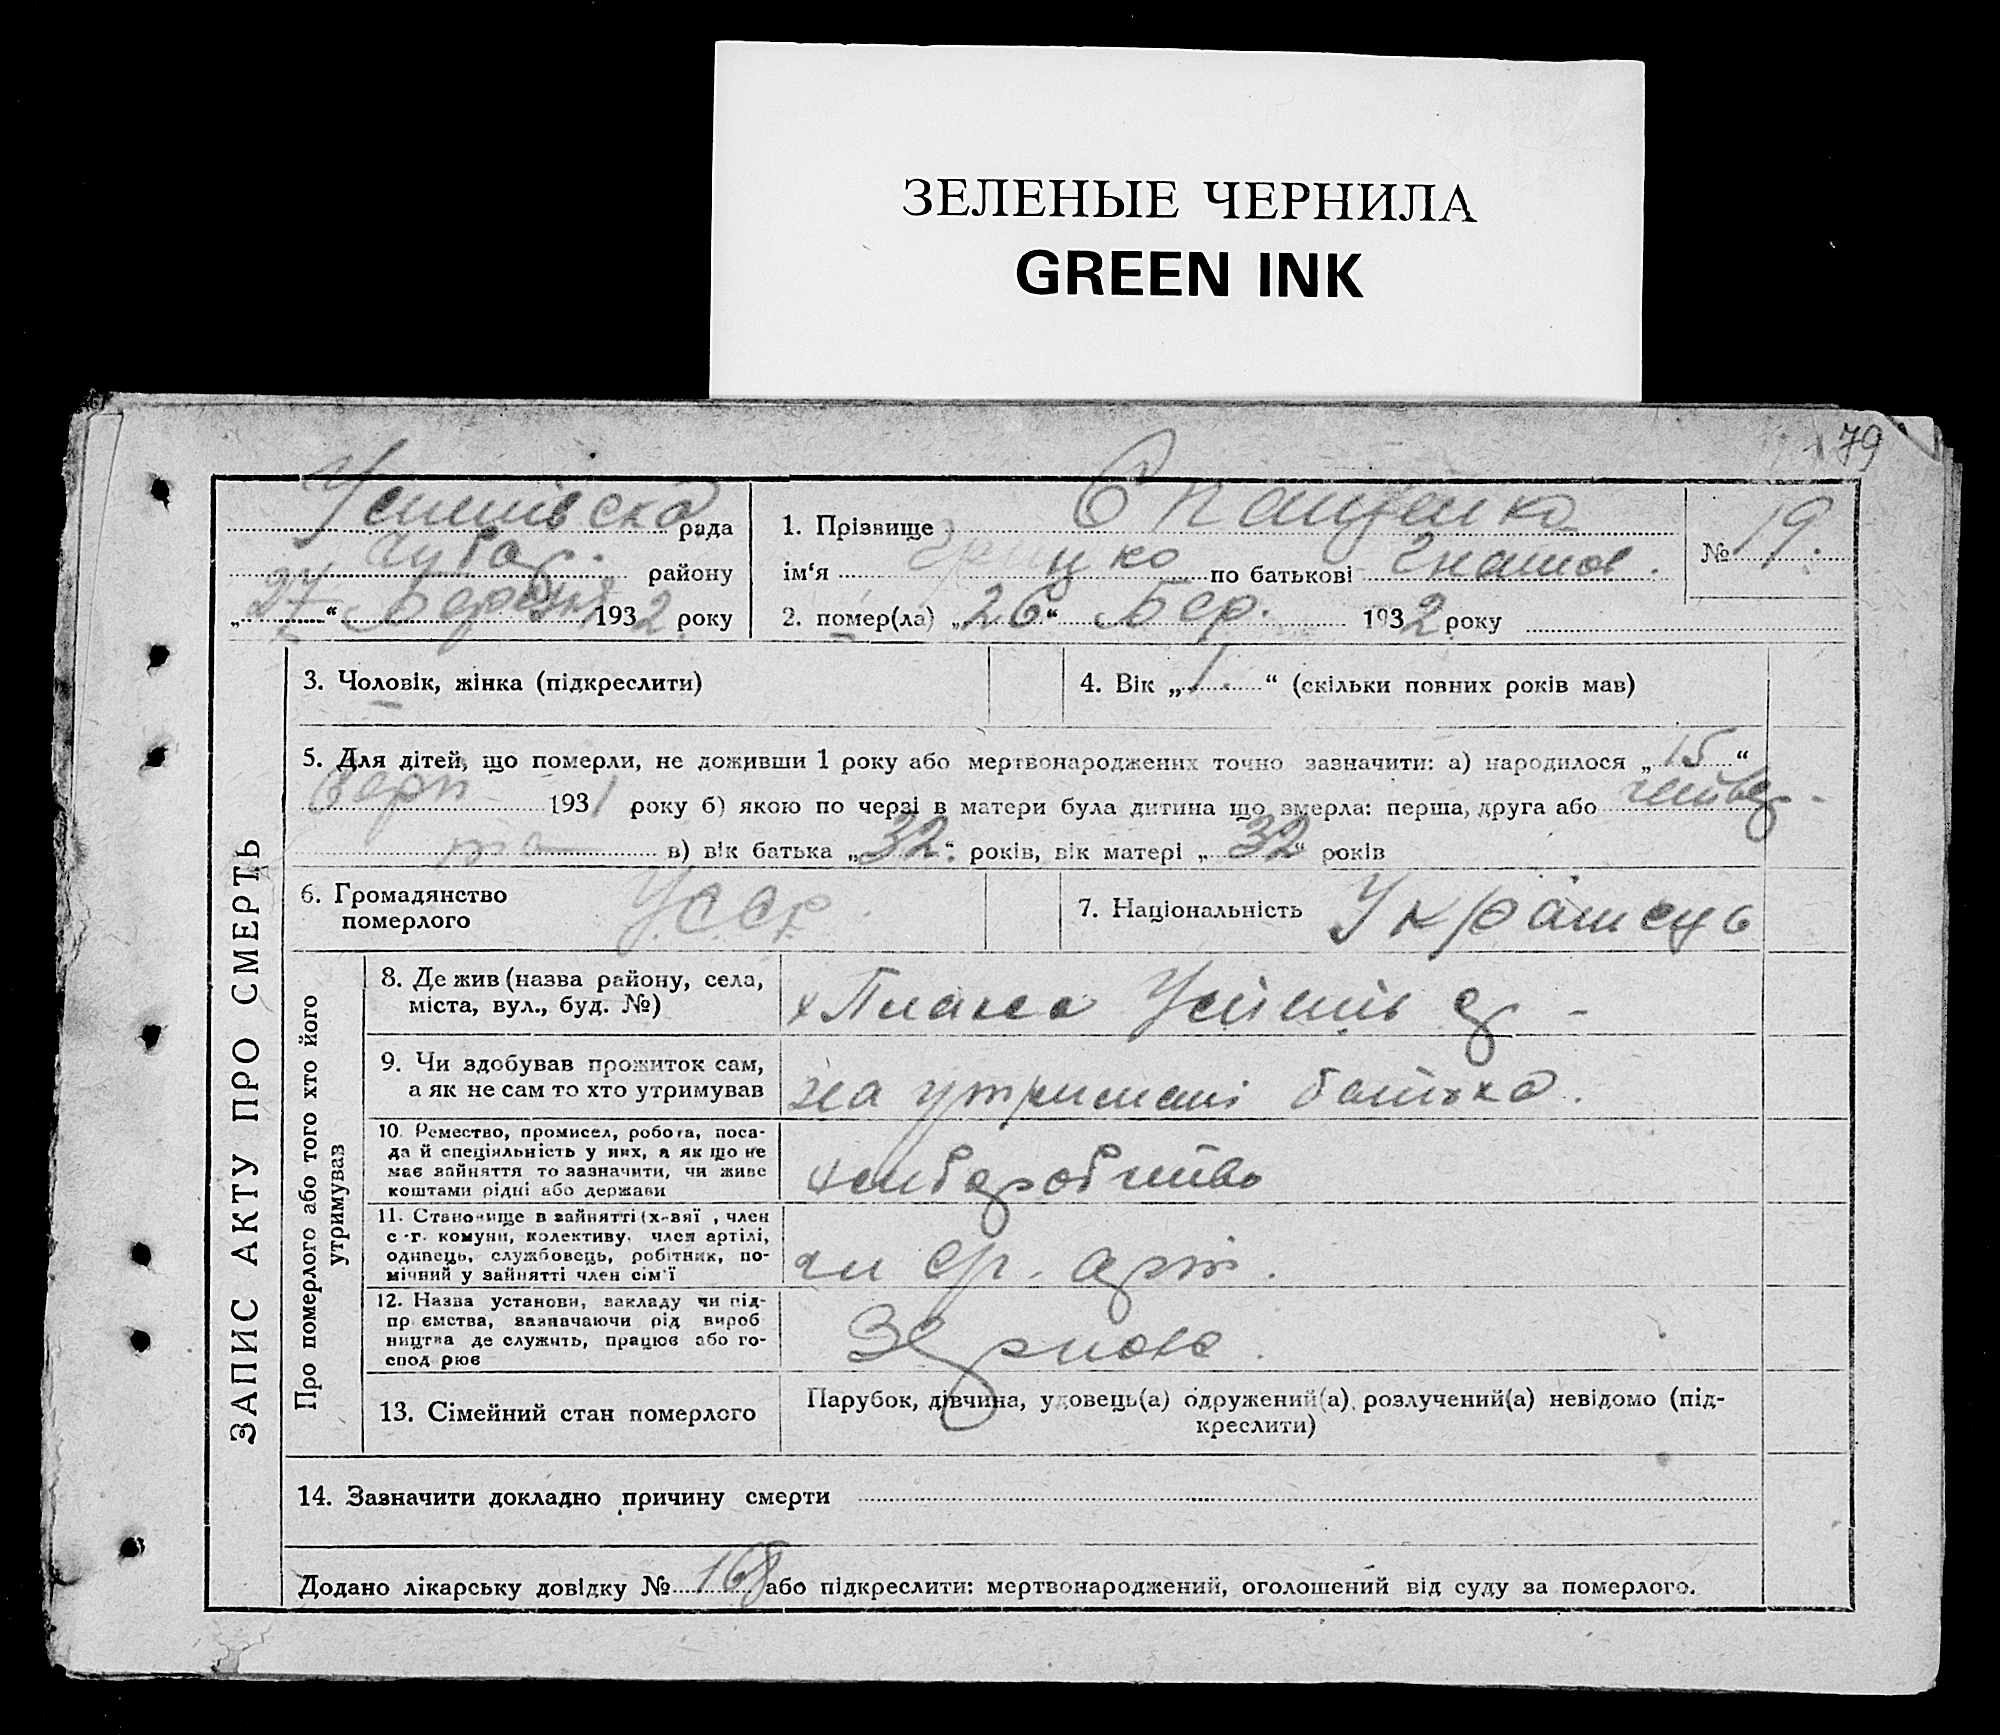 ЗЕЛЕНЫЕ ЧЕРНИЛА
GREEN INK
79
Успшівска рада
Чубар. району
„27“ Березня 1932 року
1. Прізвище Спащенко
ім‘я Грицко по батькові Гнатов.
2. помер(ла) „26“ Бер. 1932 року
№ 19.
ЗАПИС АКТУ ПРО СМЕРТЬ
3. Чоловік, жінка (підкреслити)
4. Вік „1.“ (скільки повних років мав)
5. Для дітей, що померли, не доживши 1 року або мертвонароджених точно зазначити: а) народилося „15“
Серп 1931 року б) якою по черзі в матери була дитина що вмерла: перша, друга або четвер-
та в) вік батька „32“ років, вік матері „32“ років
6. Громадянство
померлого
У.С.С.Р.
7. Національність Українець
Про померлого або того хто його
утримував
8. Де жив (назва району, села,
міста, вул., буд. №)
9. Чи здобував прожиток сам,
а як не сам то хто утримував
на утримані батька.
10. Ремество, промисел, робота, поса-
да й спеціяльність у них, а як що не
має зайняття то зазначити, чи живе
коштами рідні або держави
хлібаробство
11. Становище в зайнятті (х-вяї, член
с.-г. комуни, колективу, член артілі,
одинець, службовець, робітник, по-
мічний у зайнятті член сім‘ї
чл ср. арт.
12. Назва установи, закладу чи під-
приємства, зазначаючи рід вироб
ництва де служить, працює або го-
сподарює
13. Сімейний стан померлого
Парубок, дівчина, удовець(а) одружений(а), розлучений(а) невідомо (під-
креслити)
14. Зазначити докладно причину смерти
Додано лікарську довідку № 168 або підкреслити: мертвонароджений, оголошений від суду за померлого.